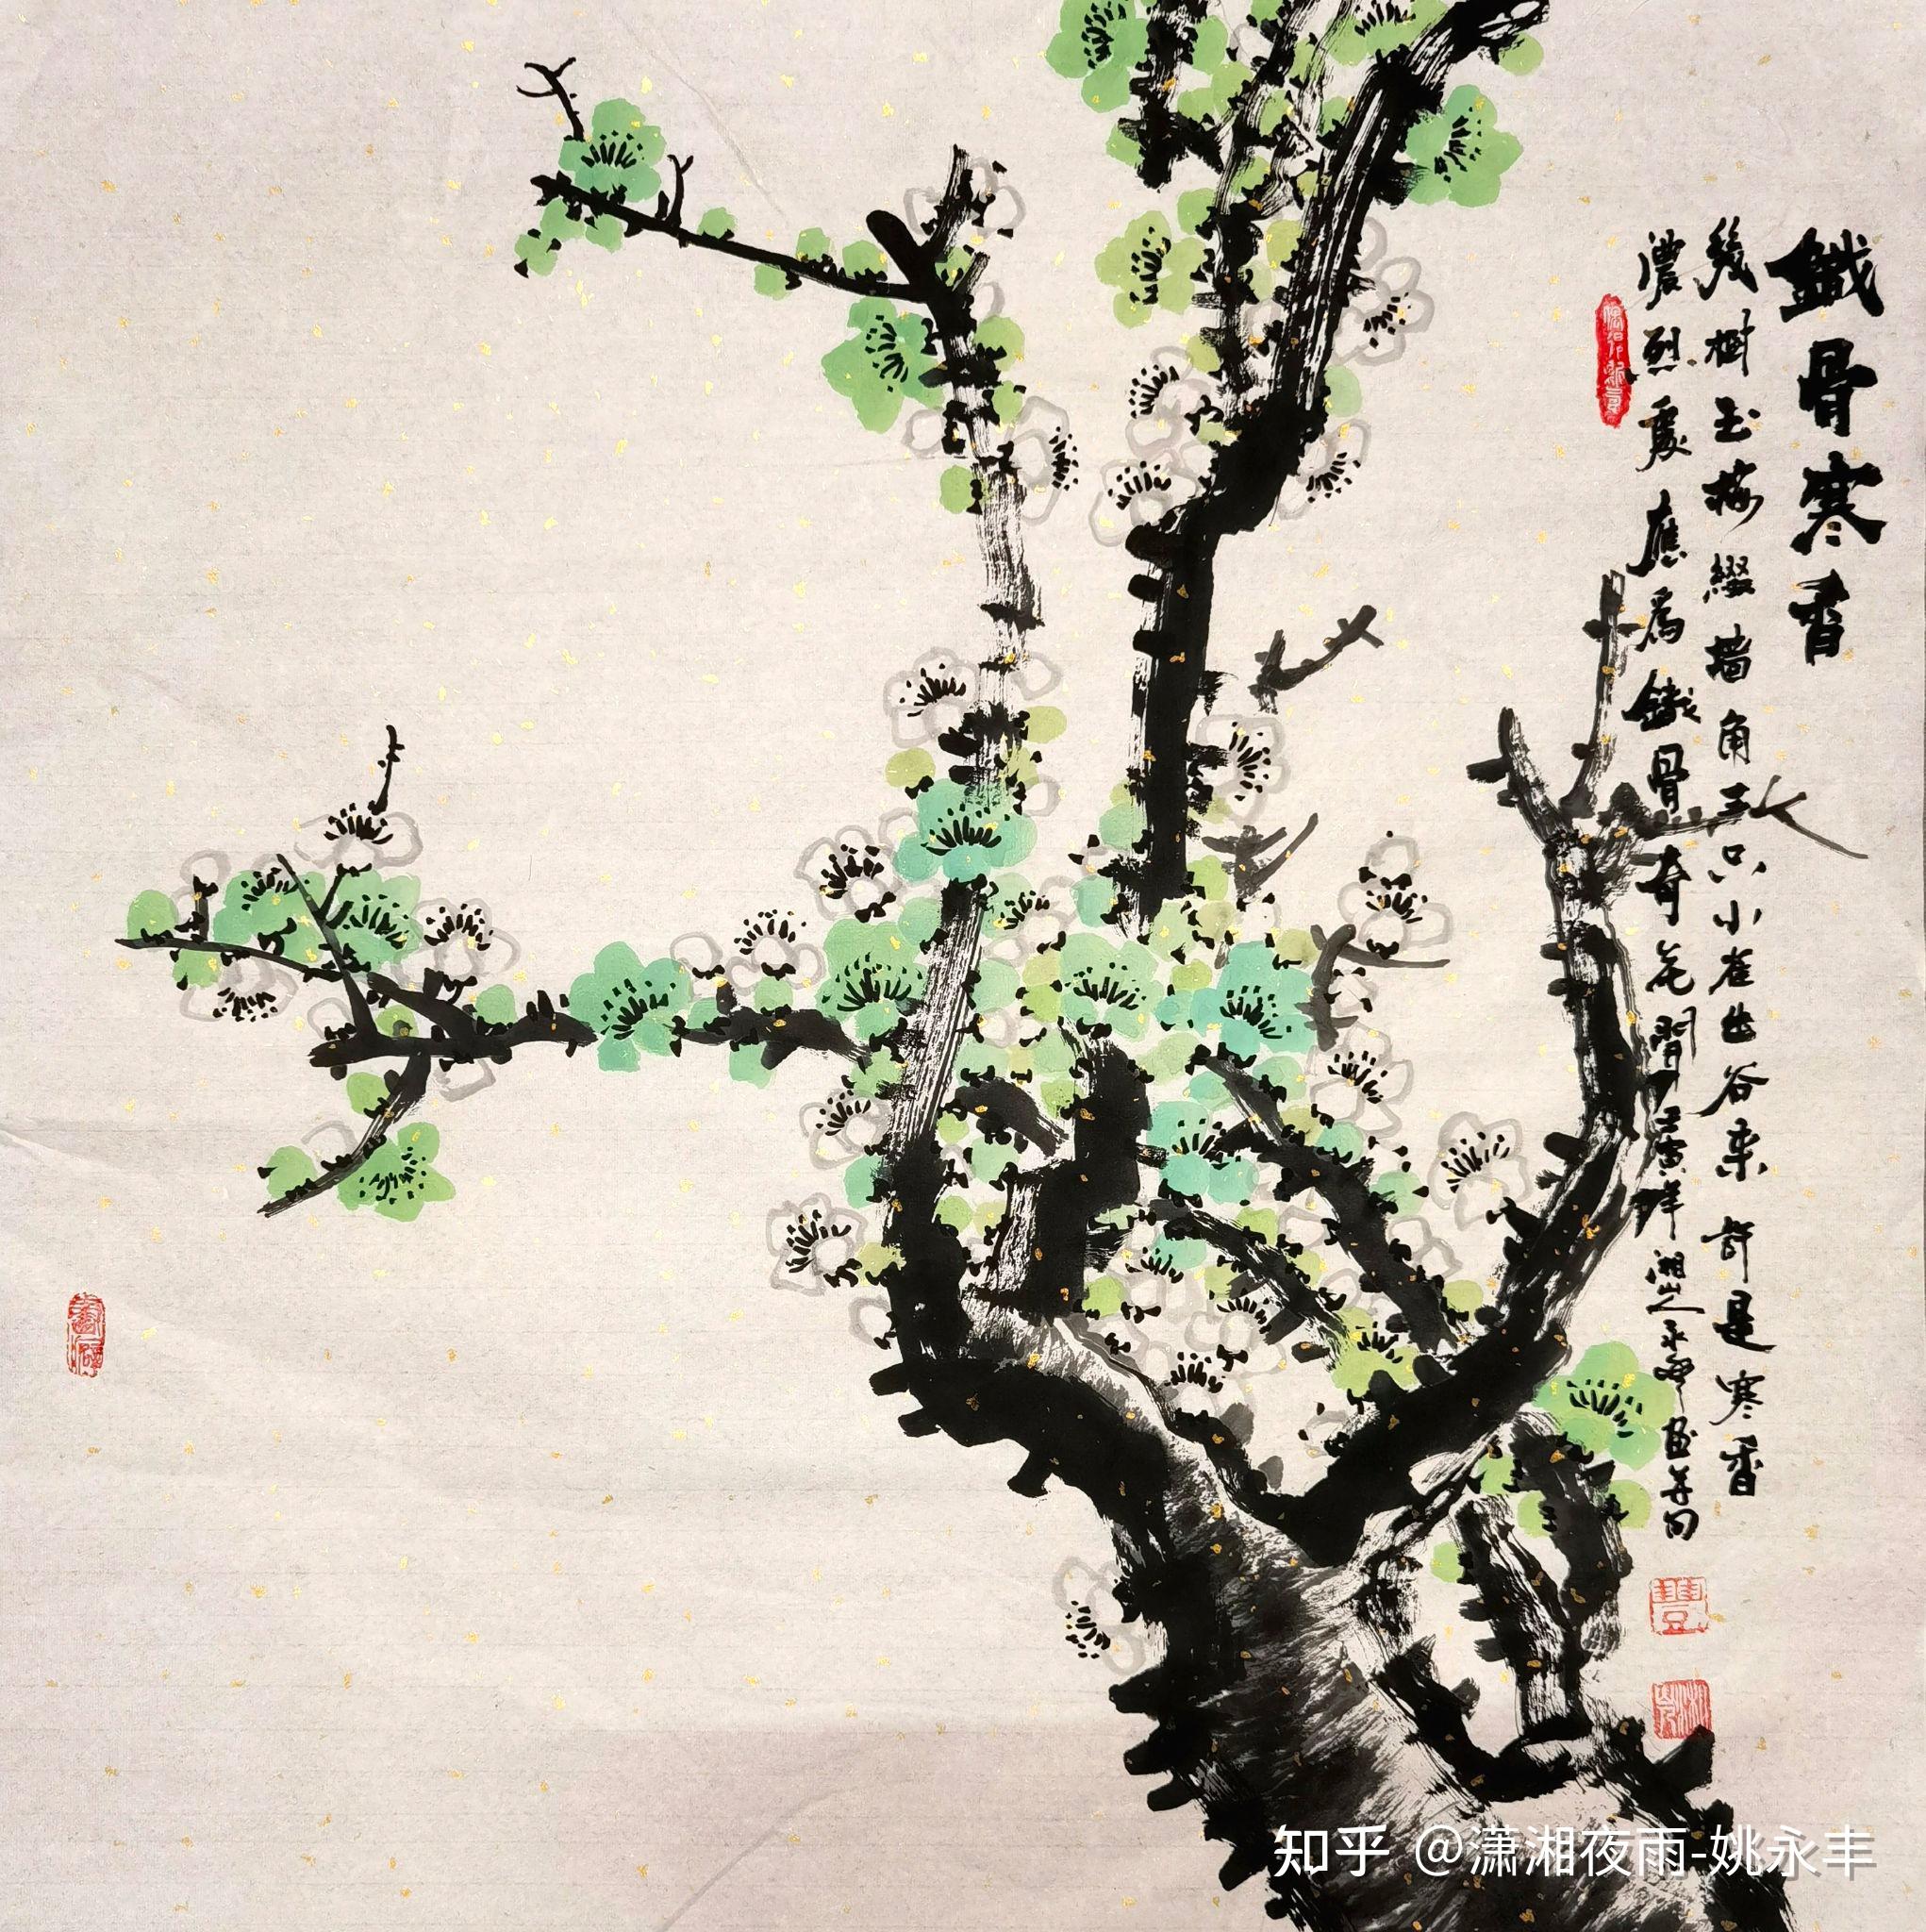 鐵骨寒香
幾樹玉梅綴墙角三只小雀出谷来許是寒香
濃烈處應爲鐵骨奇花開 潇湘之永豐画并句
豐
知乎 @潇湘夜雨-姚永丰